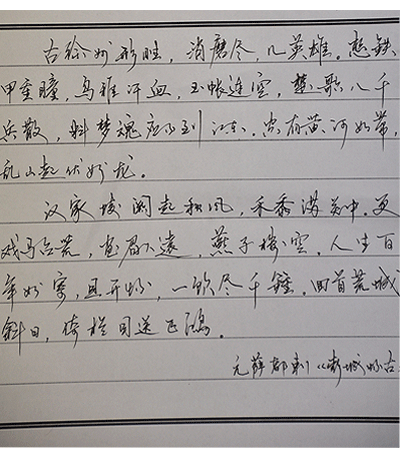 古徐州形胜，消磨尽，几英雄。想铁
甲重瞳，乌骓汗血，玉帐连空，楚歌八千
兵散，料梦魂应不到江东。尚有黄河如带，
乱山起伏如龙。
汉家陵阙起秋风，禾黍满关中，更
戏马台荒，画眉人遠，燕子楼空。人生百
年如寄，且开怀，一饮尽千锺。回首荒城
斜日，倚栏目送飞鸿。
元 萨都剌《彭城怀古